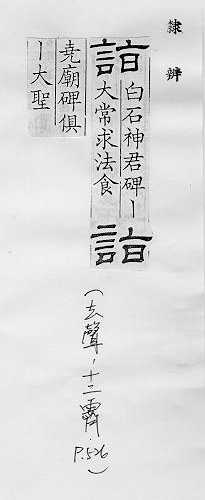 隸辨
詣
白石神君碑｜
大常求法食
詣
堯廟碑俱
｜大聖
(去聲、十二霽. P.526)